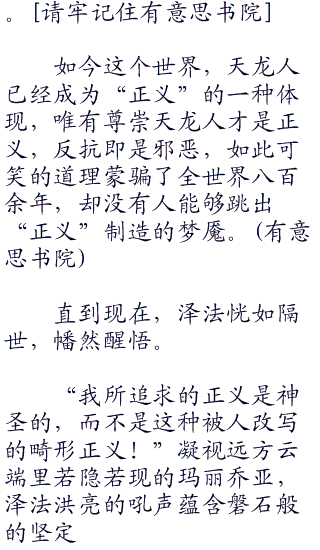 。[请牢记住有意思书院]
如今这个世界，天龙人
已经成为“正义”的一种体
现，唯有尊崇天龙人才是正
义，反抗即是邪恶，如此可
笑的道理蒙骗了全世界八百
余年，却没有人能够跳出
“正义”制造的梦魇。(有意
思书院)
直到现在，泽法恍如隔
世，幡然醒悟。
“我所追求的正义是神
圣的，而不是这种被人改写
的畸形正义！”凝视远方云
端里若隐若现的玛丽乔亚，
泽法洪亮的吼声蕴含磐石般
的坚定